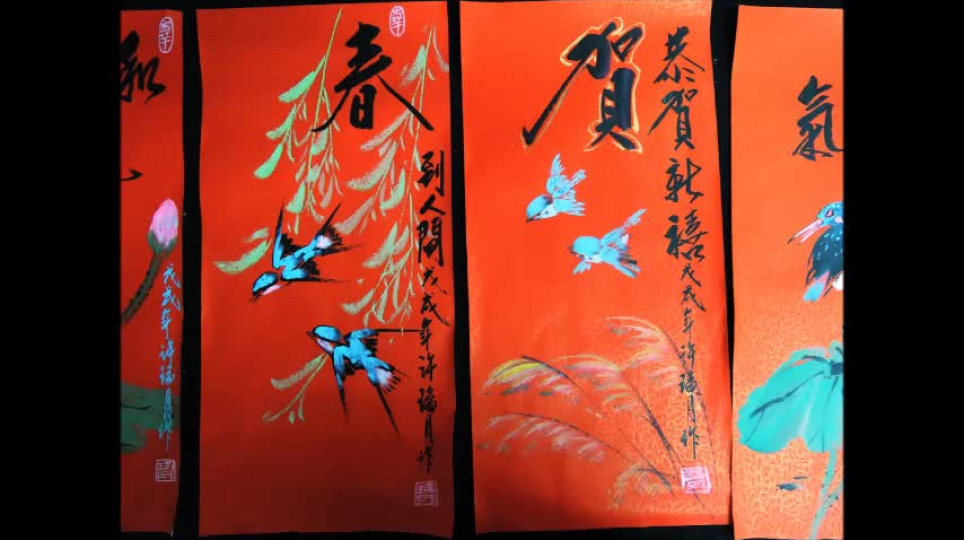 和
戊戌年許瑞月作
春
到人間戊戌年許瑞月作
賀
恭賀新禧戊戌年許瑞月作
氣